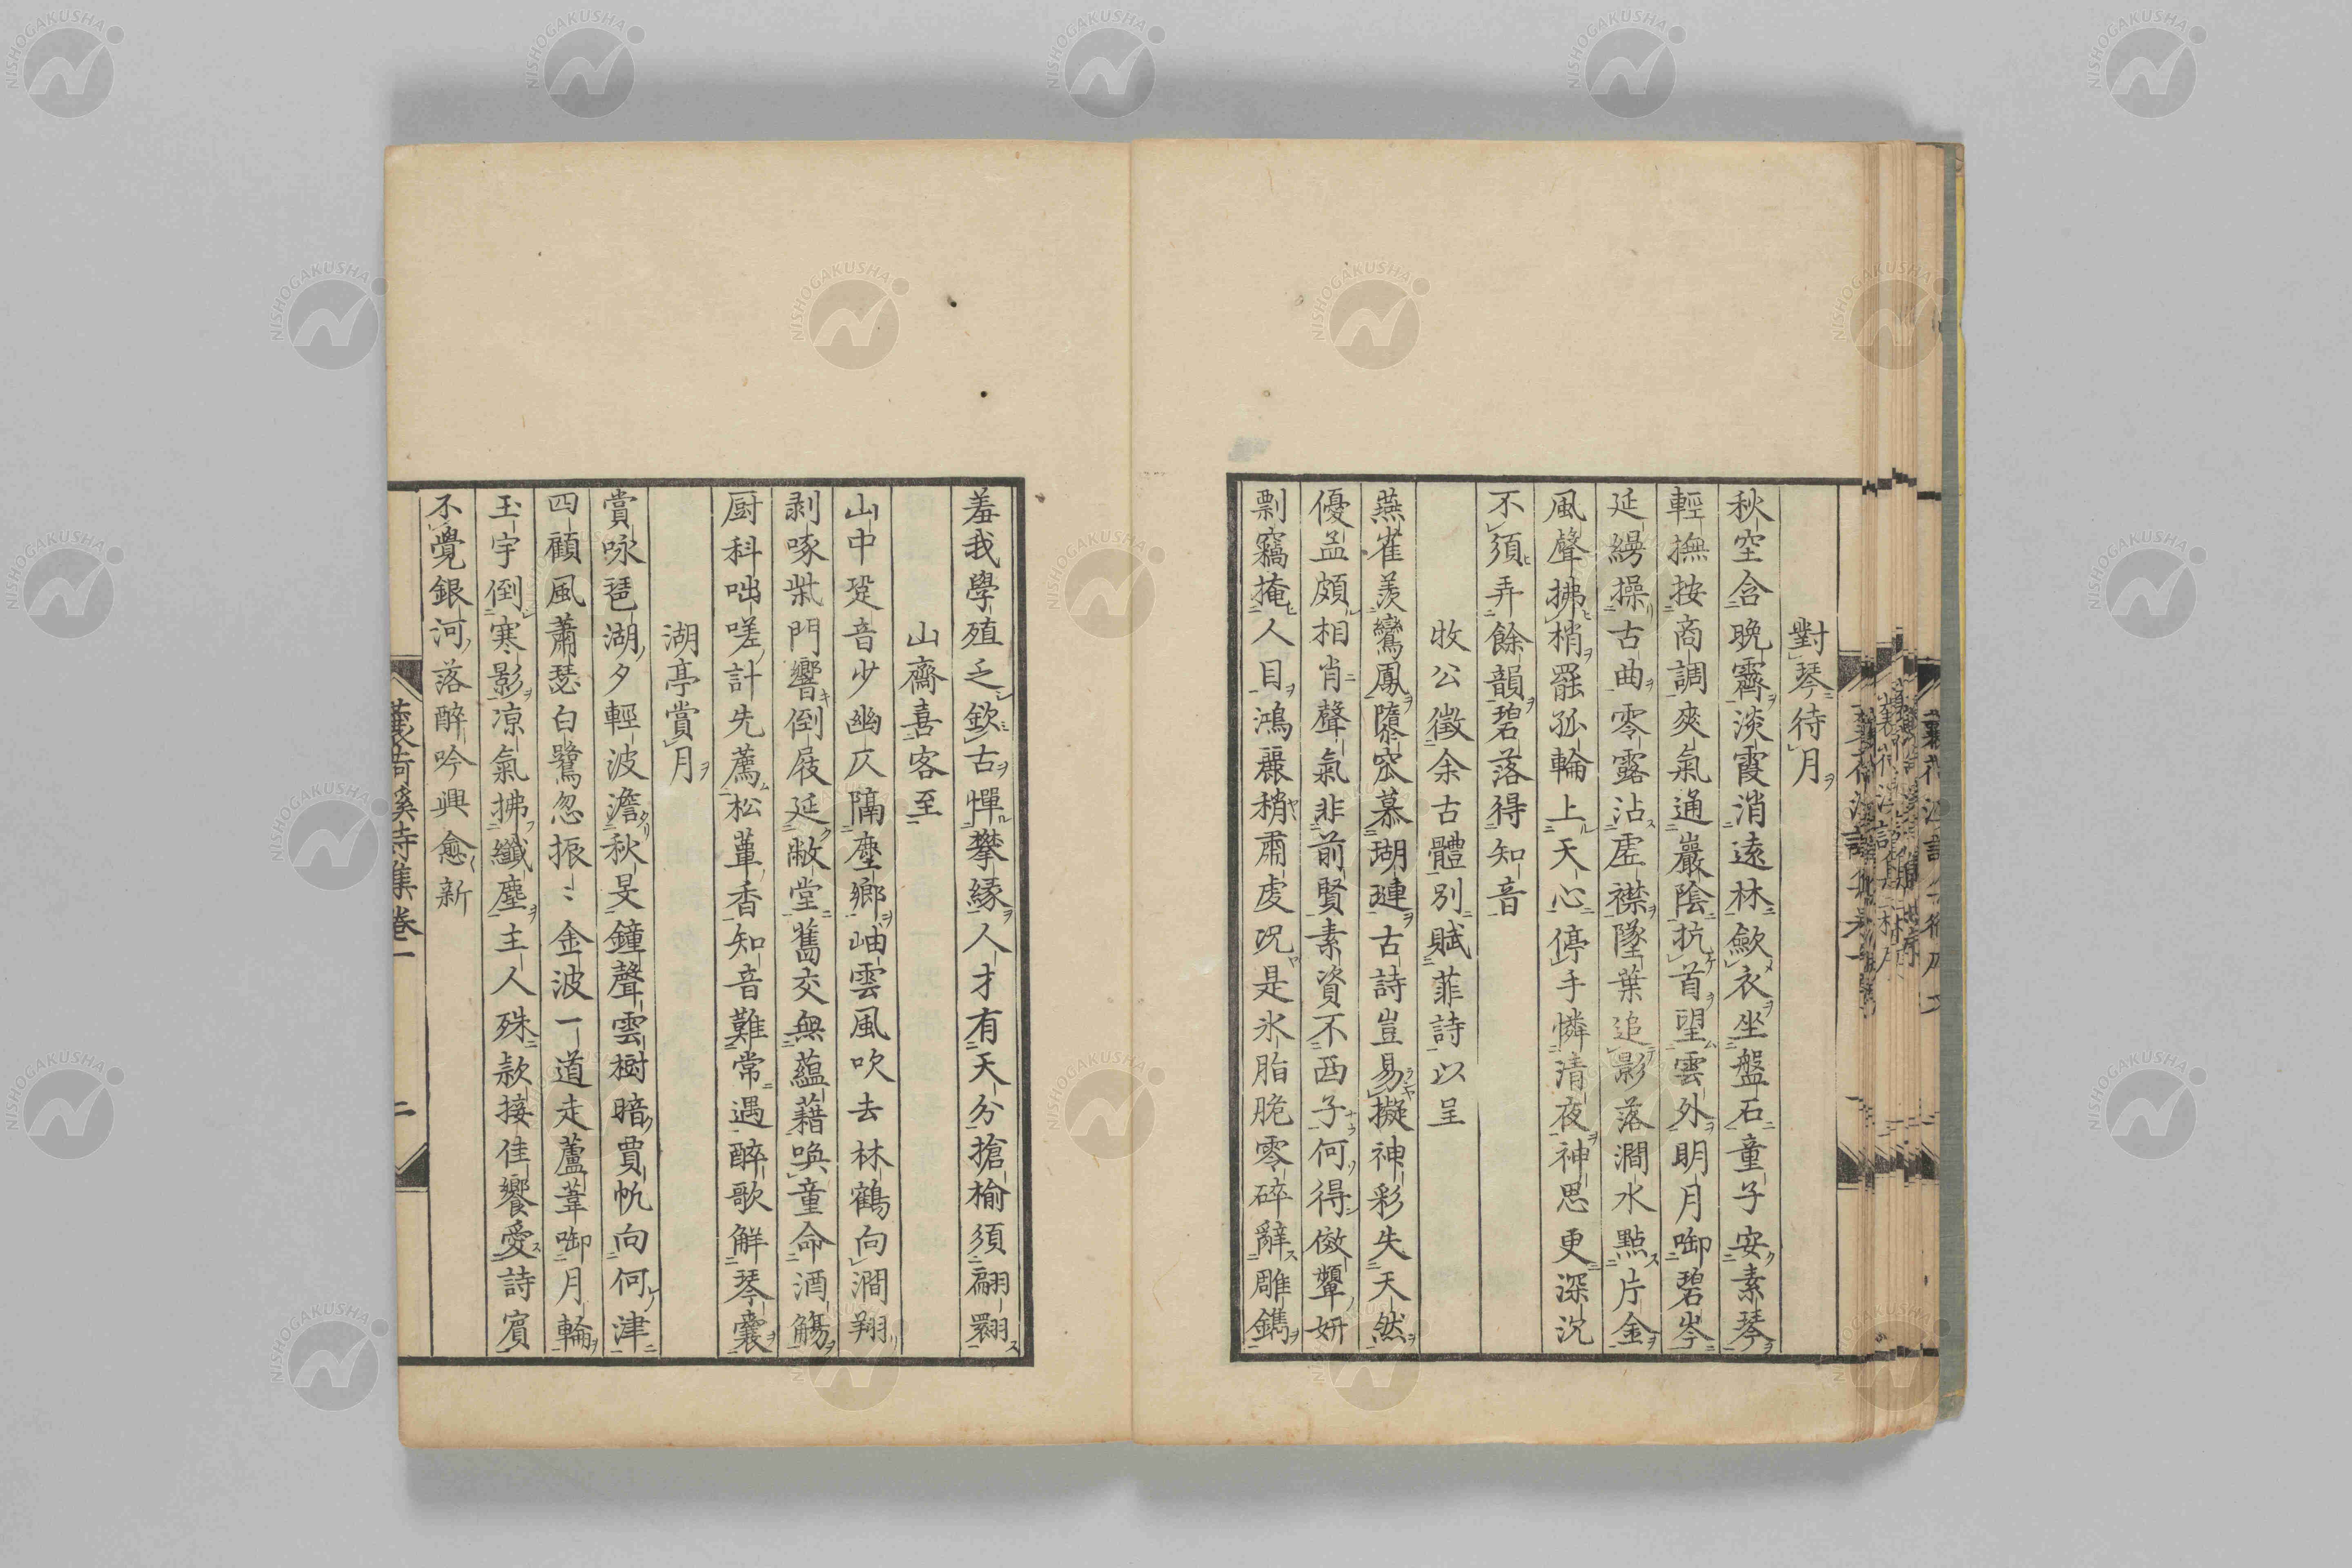 對琴待月
秋空含晩霽淡霞消遠林歛衣坐盤石童子安素琴
輕撫按商調爽氣通巖陰抗首望雲外明月啣碧岑
延緩操古曲零露沾虛襟墜葉追影落澗水點片金
風聲拂梢罷孤輪上天心停手憐清夜神思更深沈
不須弄餘韻碧落得知音
牧公徵余古體別賦菲詩以呈
燕雀羨鸞鳳隳窊慕瑚璉古詩豈易擬神彩失天然
優孟頗相肖聲氣非前賢素資不西子何得傚顰妍
剽竊掩人目鴻麗稍肅虔况是氷脂脆零碎辭雕鐫
羞我學殖乏欽古憚攀縁人才有天分搶楡須翩翾
山齋喜客至
山中跫音少幽仄隔塵鄉岫雲風吹去林鶴向澗翔
剥啄柴門響倒屐延敝堂舊交無蘊藉喚童命酒觴
厨科咄嗟計先薦松蕈香知音難常遇醉歌解琴囊
湖亭賞月
賞咏琶湖夕輕波澹秋旻鐘聲雲樹暗賈帆向何津
四顧風蕭瑟白鷺忽振〻金波一道走蘆葦啣月輪
玉宇倒寒影凉氣拂纖塵主人殊欵接佳饗愛詩賓
不覺銀河落醉吟興愈新
蓑荷溪詩集卷一
二
NISHOGAKUSHA